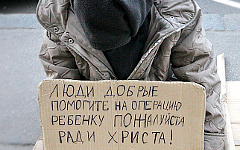 ЛЮДИ ДОБРЫЕ
ПОМОГИТЕ НА ОПЕРАЦИЮ
РЕБЕНКУ ПОЖАЛУЙСТА
РАДИ ХРИСТА!